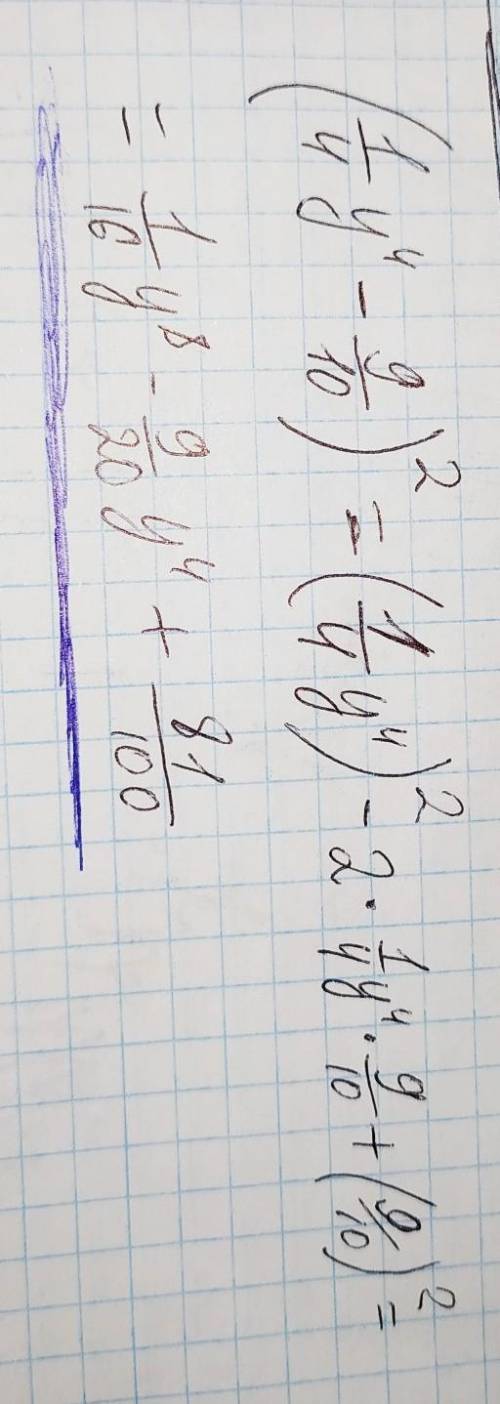 (1/4 y⁴ - 9/10)² = (1/4 y⁴)² - 2 · 1/4 y⁴ · 9/10 + (9/10)² =
= 1/16 y⁸ - 9/20 y⁴ + 81/100